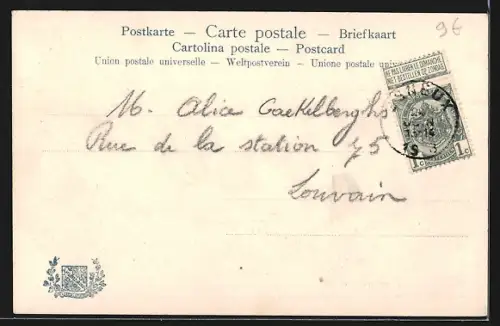 9€
Postkarte — Carte postale — Briefkaart
Cartolina postale — Postcard
Union postale universelle — Weltpostverein — Unione postale
NE PAS LIVRER LE DIMANCHE
NIET BESTELLEN OP ZONDAG
M. Alice Gaekelberghs
Rue de la station 75
Louvain
1c 1c